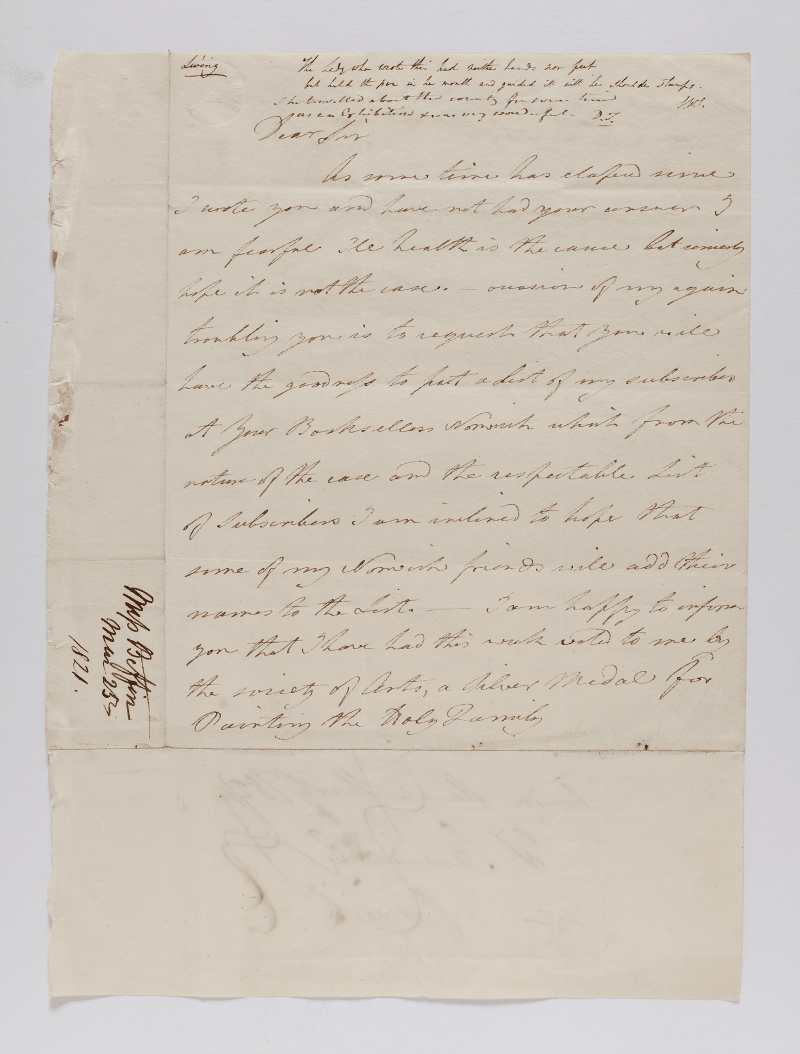 Living
The Lady who wrote this had neither hands nor feet
but held the pen in her mouth and guided it with her shoulder stumps.
She travelled about the country for some time
as an Exhibition & was very wonderful. D.T.
Dear Sir
As some time has elapsed since
I wrote you and have not had your answer I
am fearful Ill health is the cause but sincerely
hope it is not the case. — occasion of my again
troubling you is to request that you will
have the goodness to put a List of my subscribers
at your Booksellers Norwich which from the
nature of the case and the respectable List
of Subscribers I am inclined to hope that
some of my Norwich friends will add their
names to the List. — I am happy to inform
you that I have had this week voted to me by
the society of Arts, a Silver Medal for
Painting the Holy Family
Miss Beffin
Mar 23
1821.